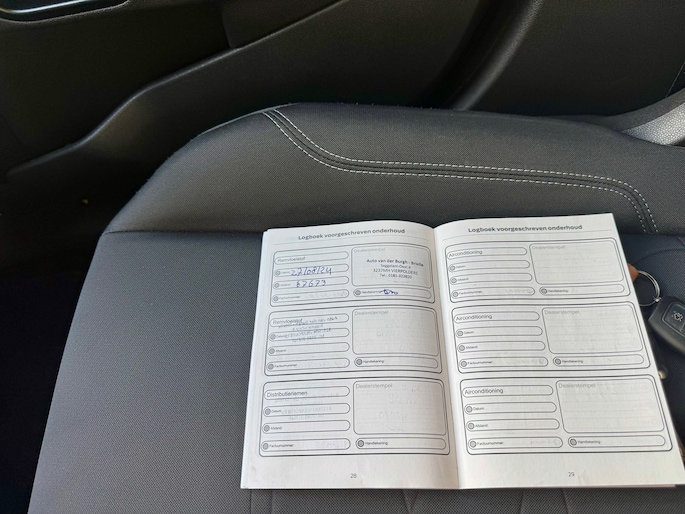 Logboek voorgeschreven onderhoud
Remvloeistof
Datum: 22/08/24
Afstand: 82673
Dealerstempel
Auto van der Burgh - Brielle
Tel.: 0181-
Handtekening:
Remvloeistof
Datum:
Afstand:
Factuurnummer:
Dealerstempel
Handtekening:
Distributieriemen
Datum:
Afstand:
Factuurnummer:
Dealerstempel
Handtekening:
28
Logboek voorgeschreven onderhoud
Airconditioning
Datum:
Afstand:
Factuurnummer:
Dealerstempel
Handtekening:
Airconditioning
Datum:
Afstand:
Factuurnummer:
Dealerstempel
Handtekening:
Airconditioning
Datum:
Afstand:
Factuurnummer:
Dealerstempel
Handtekening:
29